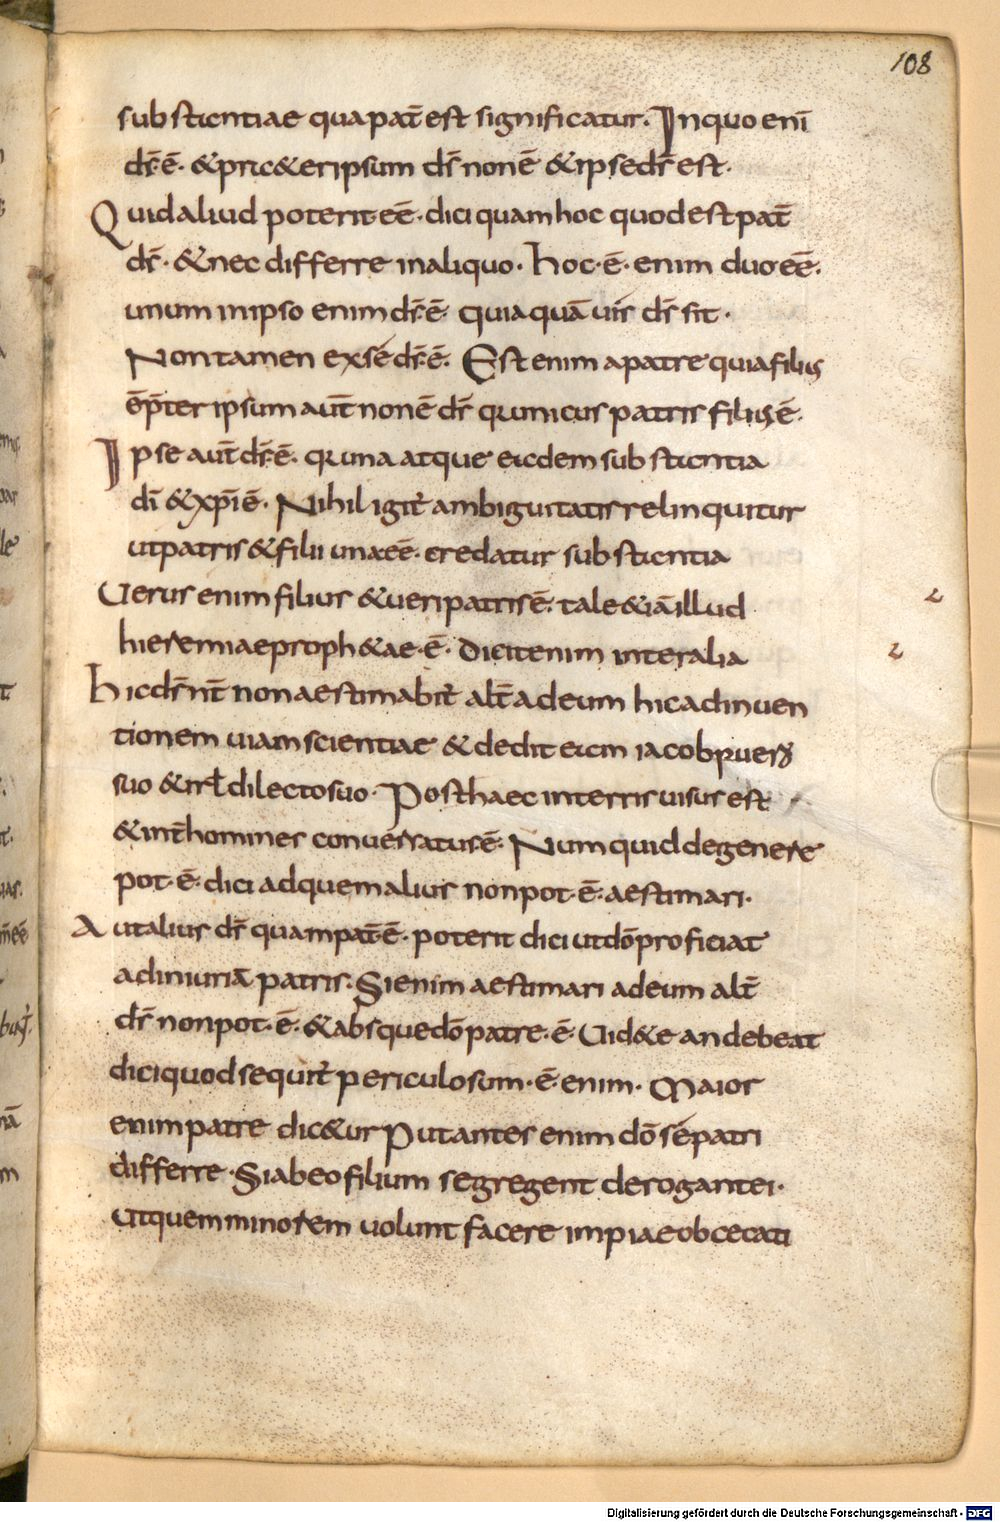 108
substantiae qua pat̄ est significatur. In quo enī
dr̄ ē. & praeter ipsum dr̄ non ē & ipse dr̄ est.
Quid aliud poterit eē. dici quam hoc quod est pat̄
dr̄. & nec differre in aliquo. hoc. ē. enim duo eē.
unum in ipso enim dr̄ ē quia quā uis dr̄ sit.
Non tamen ex sé dr̄ ē. Est enim a patre quia filius
ē p̄ter ipsum aut̄ non ē dr̄ qui unicus patris filius ē.
Ipse aut̄ dr̄ ē. qui una atque eadem substantia
dī & xp̄i ē. Nihil igit̄ ambiguitatis relinquitur
ut patris & filii una eē. credatur substantia
Uerus enim filius & ueri patris ē. tale & iā illud
hieremiae proph&ae. ē. Dicit enim inter alia
hic dr̄ nr̄ non aestimabit̄ alt̄ ad eum hic adinuen
tionem uiam scientiae & dedit eam iacob puero
suo & isrl̄ dilecto suo. Post haec in terris uisus est
& int̄ homines conuersatus ē. Numquid degenere
pot. ē. dici ad quem alius non pot. ē. aestimari.
Aut alius dr̄ quam pat̄ ē. poterit dici ut dō proficiat
ad iniuriā patris. Si enim aestimari ad eum alt̄
dr̄ non pot. ē. & absque dō patre. ē. Uid&e an debeat
dici quod sequit̄ periculosum. ē. enim. Maior
enim patre dic&ur Putantes enim dō sé patri
differre. Si ab eo filium segregent derogantei.
Atquem minorem uolunt facere impiae obcecati
Digitalisierung gefördert durch die Deutsche Forschungsgemeinschaft - DFG